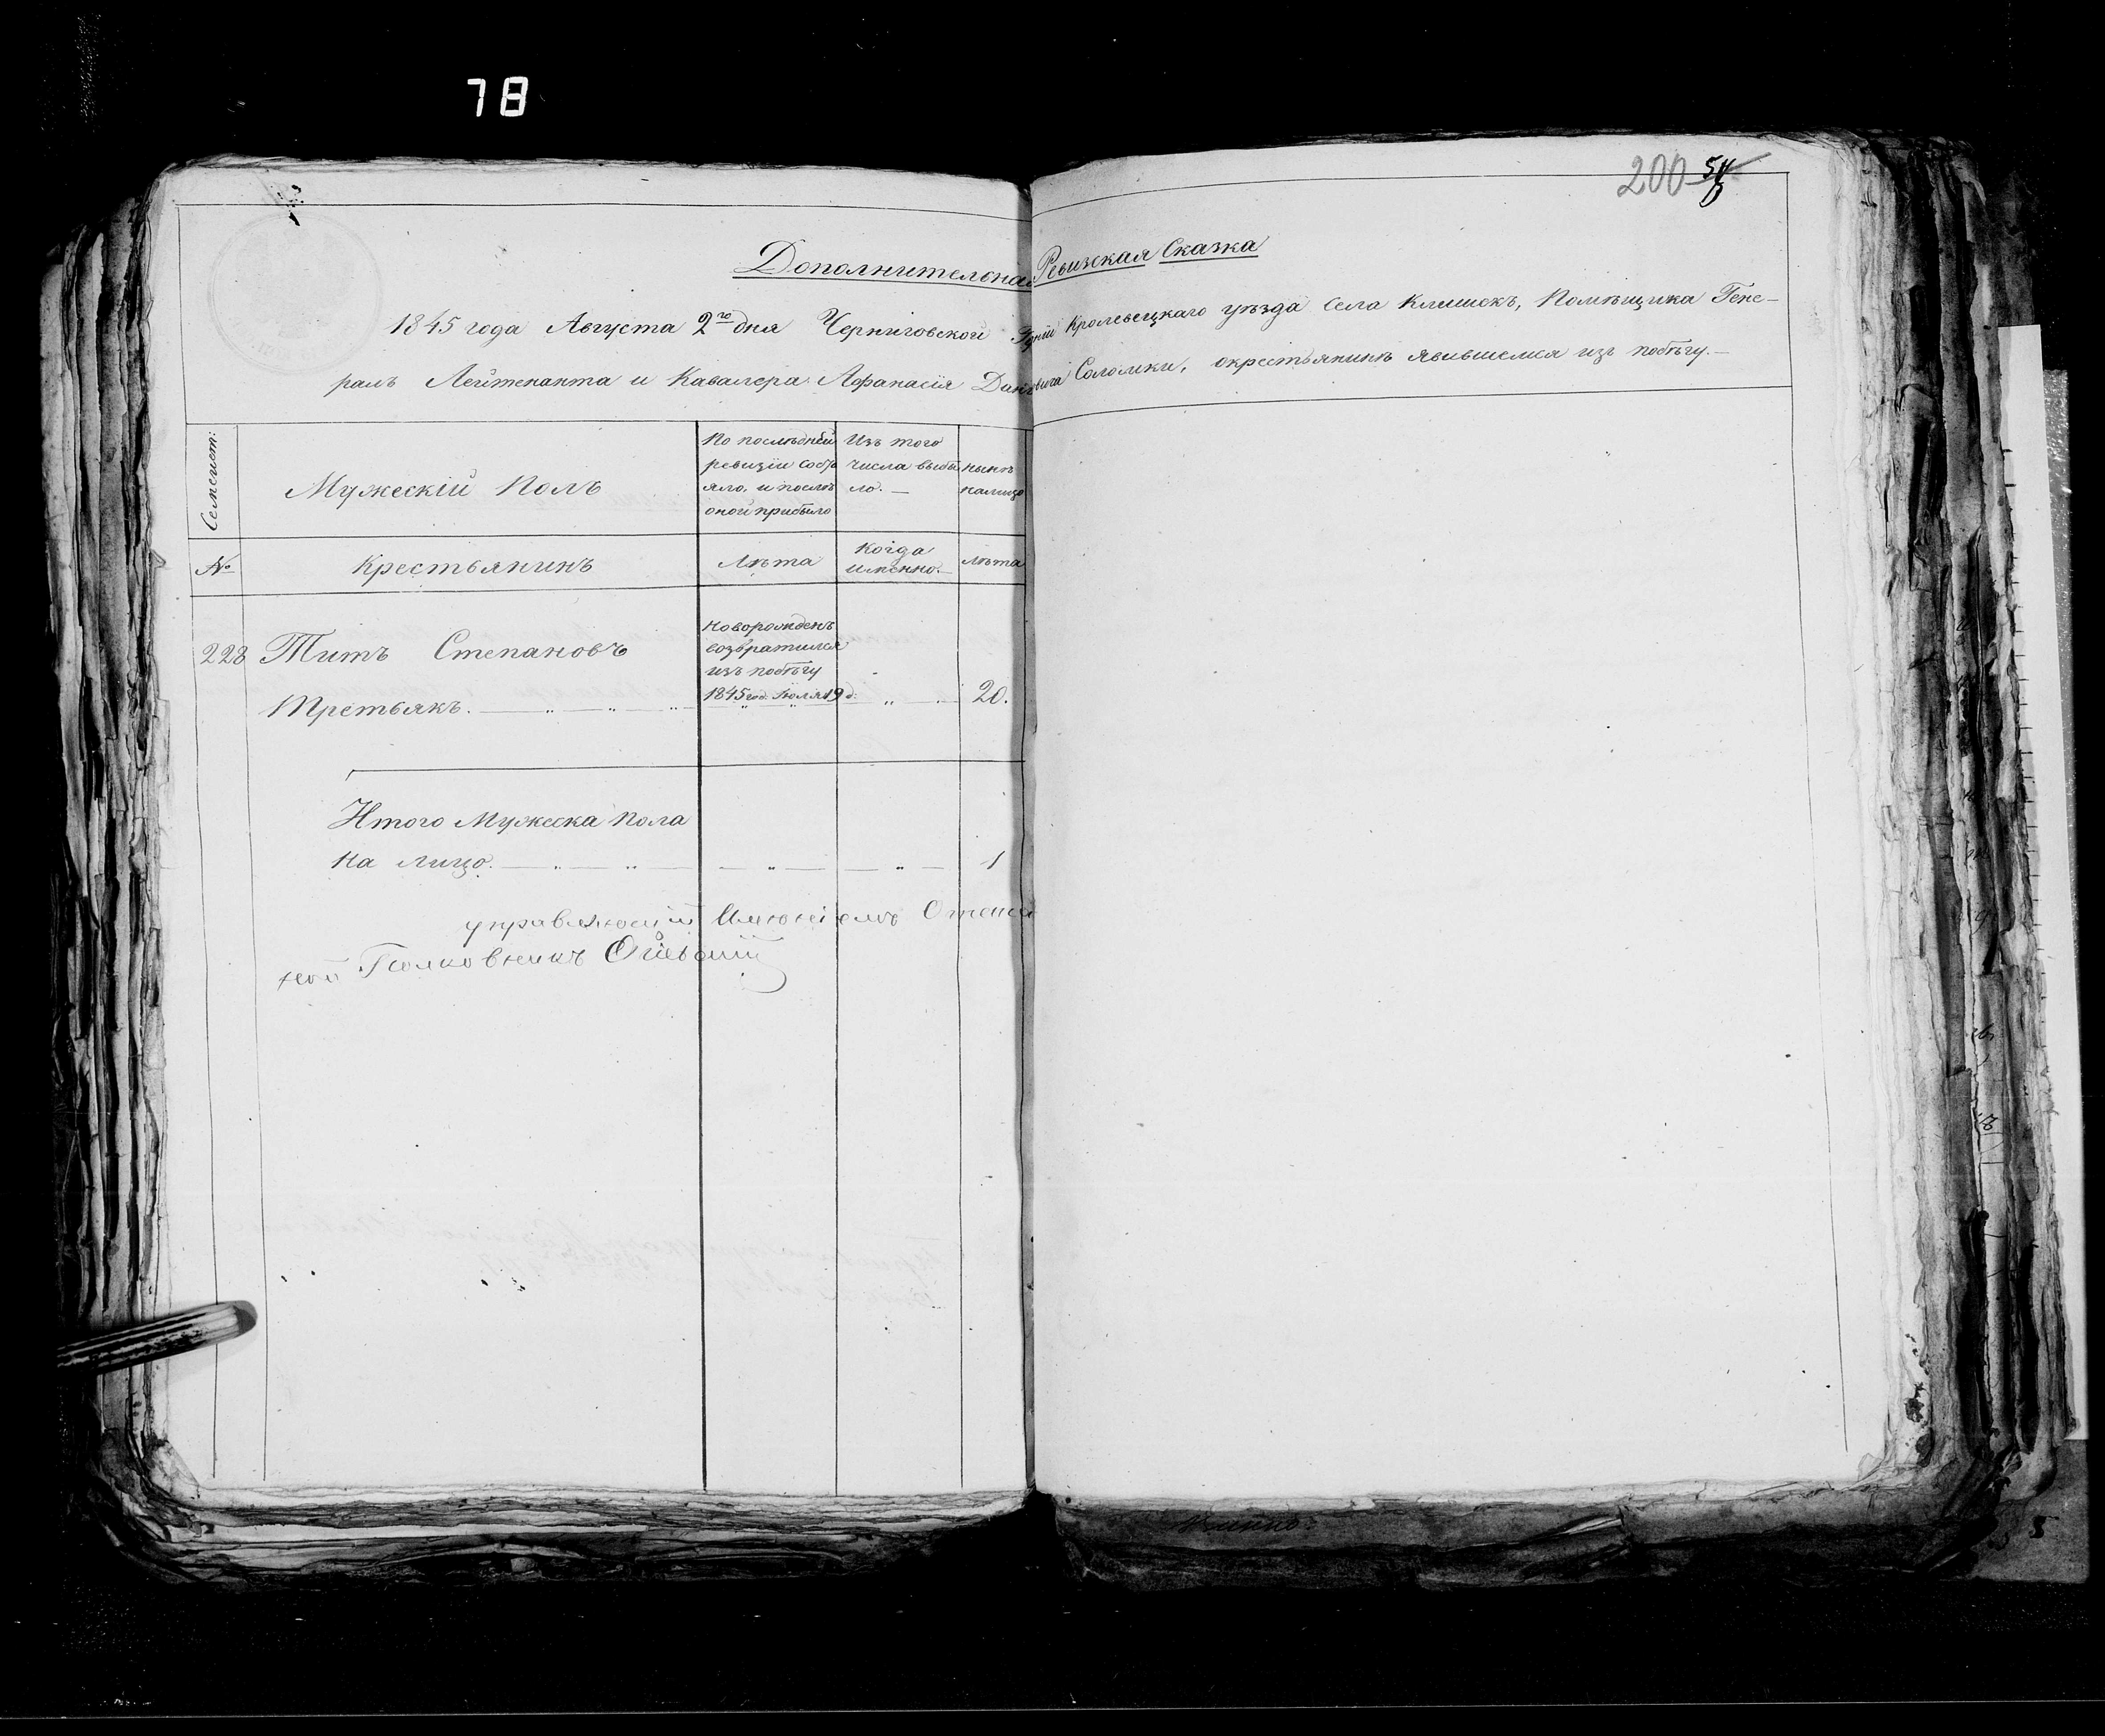 78
200
Дополнительная Ревизская Сказка
1845 года Августа 2го дня Черниговской Губерніи Кролевецкаго уѣзда Села Клишекъ, Помѣщика Гене-
ралъ Лейтенанта и Кавалера Афанасія Даниловича Соломки, о крестьянинѣ явившемся изъ побѣгу.—
Семеист:
Мужескій Полъ
По послѣдней
ревизіи состо
яло, и послѣ
оной прибыло
Изъ того
числа выбы
ло.—
нынѣ
на лицо
№
Крестьянинъ
Лѣта
Когда
именно.—
лѣта
228 Титъ Степановъ
Третьякъ.
Новорожденъ
возвратился
изъ побѣгу
1845 год. Іюля 19 д:
20.
Итого Мужеска Пола
На лицо.
1
управляющій Имѣніемъ Отстав
ной Полковникъ